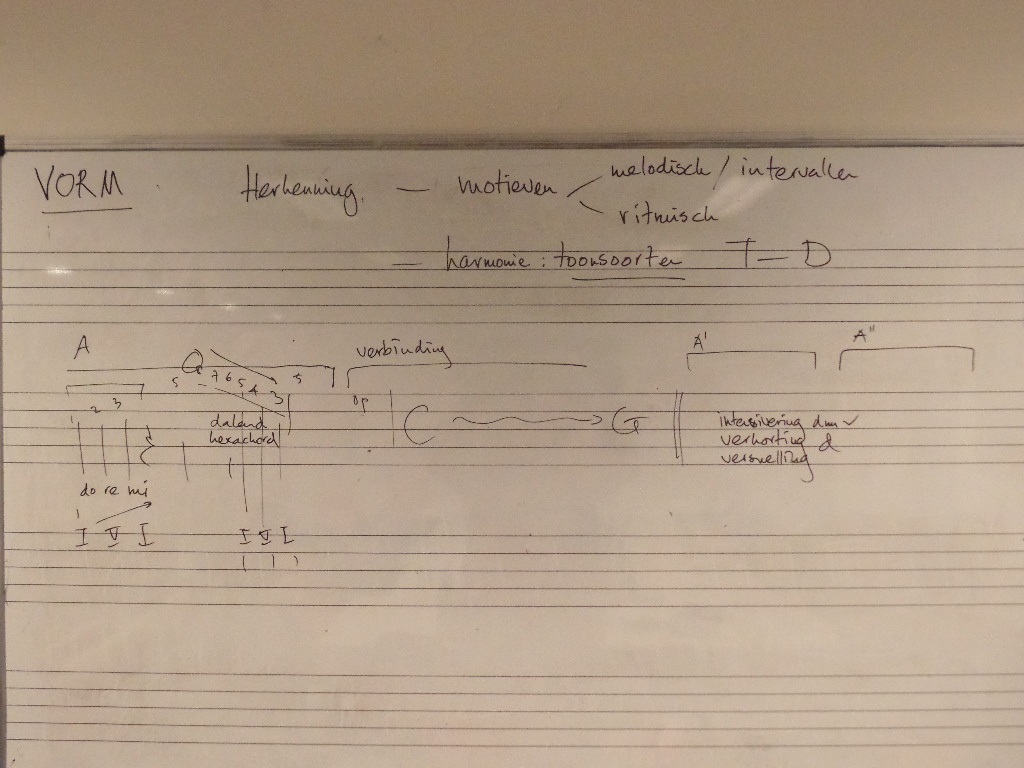 VORM Herkenning — motieven melodisch / intervallen
ritmisch
— harmonie : toonsoorten T — D
A verbinding A' A"
5 7 6 5 4 3 5
1 2 3
C G
daland
hexachord
intensivering d.m.v
verkorting &
versnelling
do re mi
I V I I V I